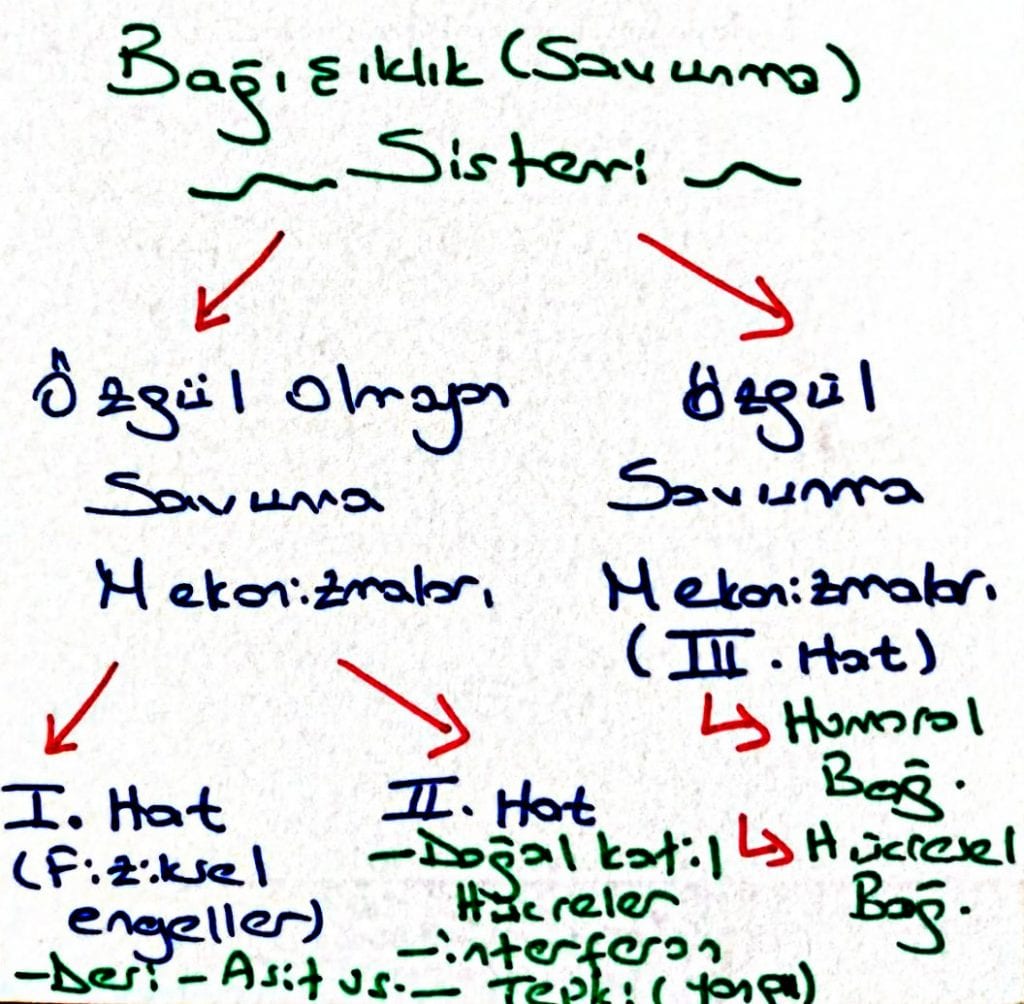 Bağışıklık (Savunma)
Sistemi
Özgül Olmayan
Savunma
Mekanizmaları
Özgül
Savunma
Mekanizmaları
(III. Hat)
Humoral
Bağ.
Hücresel
Bağ.
I. Hat
(Fiziksel
engeller)
-Deri -Asit vs.
II. Hat
-Doğal katil
Hücreler
-interferon
- Tepki (yangı)